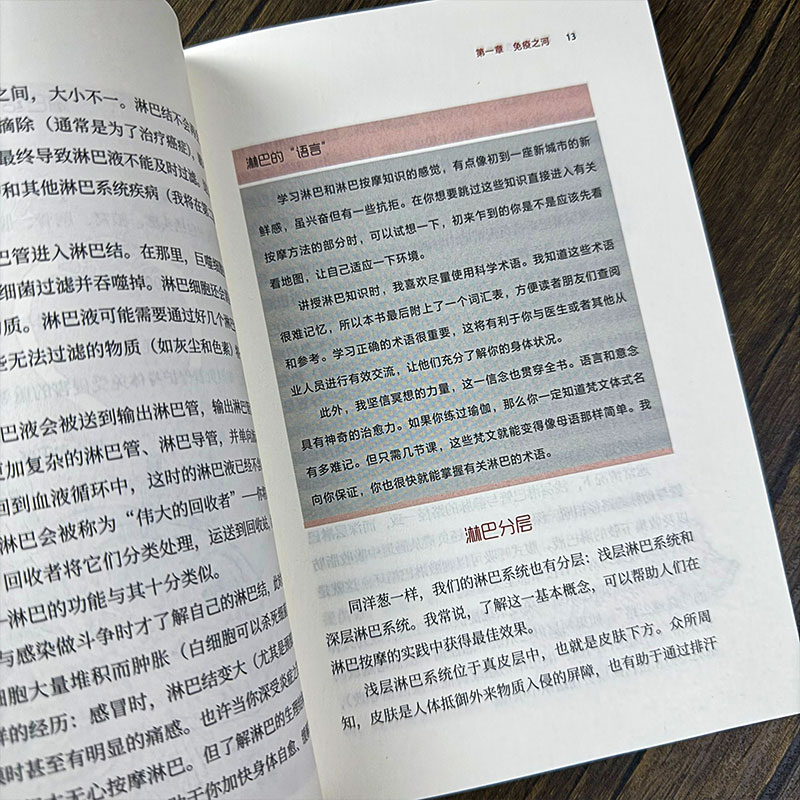 之间，大小不一。淋巴结不会
摘除（通常是为了治疗癌症），
最终导致淋巴液不能及时过滤。
和其他淋巴系统疾病（我将在第
巴管进入淋巴结。在那里，巨噬细
细菌过滤并吞噬掉。淋巴细胞还会
物质。淋巴液可能需要通过好几个淋
些无法过滤的物质（如灰尘和色素）
巴液会被送到输出淋巴管，输出淋巴管
更加复杂的淋巴管、淋巴导管，并单向
回到血液循环中，这时的淋巴液已经不
淋巴会被称为“伟大的回收者”—
回收者将它们分类处理，运送到回收站
—淋巴的功能与其十分类似。
与感染做斗争时才了解自己的淋巴结，
细胞大量堆积而肿胀（白细胞可以杀死
样的经历：感冒时，淋巴结变大（尤其是
时甚至有明显的痛感。也许当你深受炎症
无心按摩淋巴。但了解淋巴的生理
于你加快身体自愈、
第一章 免疫之河 13
淋巴的“语言”
学习淋巴和淋巴按摩知识的感觉，有点像初到一座新城市的新
鲜感，虽兴奋但有一些抗拒。在你想要跳过这些知识直接进入有关
按摩方法的部分时，可以试想一下，初来乍到的你是不是应该先看
看地图，让自己适应一下环境。
讲授淋巴知识时，我喜欢尽量使用科学术语。我知道这些术语
很难记忆，所以本书最后附上了一个词汇表，方便读者朋友们查阅
和参考。学习正确的术语很重要，这将有利于你与医生或者其他从
业人员进行有效交流，让他们充分了解你的身体状况。
此外，我坚信冥想的力量，这一信念也贯穿全书。语言和意念
具有神奇的治愈力。如果你练过瑜伽，那么你一定知道梵文体式名
有多难记。但只需几节课，这些梵文就能变得像母语那样简单。我
向你保证，你也很快就能掌握有关淋巴的术语。
淋巴分层
同洋葱一样，我们的淋巴系统也有分层：浅层淋巴系统和
深层淋巴系统。我常说，了解这一基本概念，可以帮助人们在
淋巴按摩的实践中获得最佳效果。
浅层淋巴系统位于真皮层中，也就是皮肤下方。众所周
知，皮肤是人体抵御外来物质入侵的屏障，也有助于通过排汗